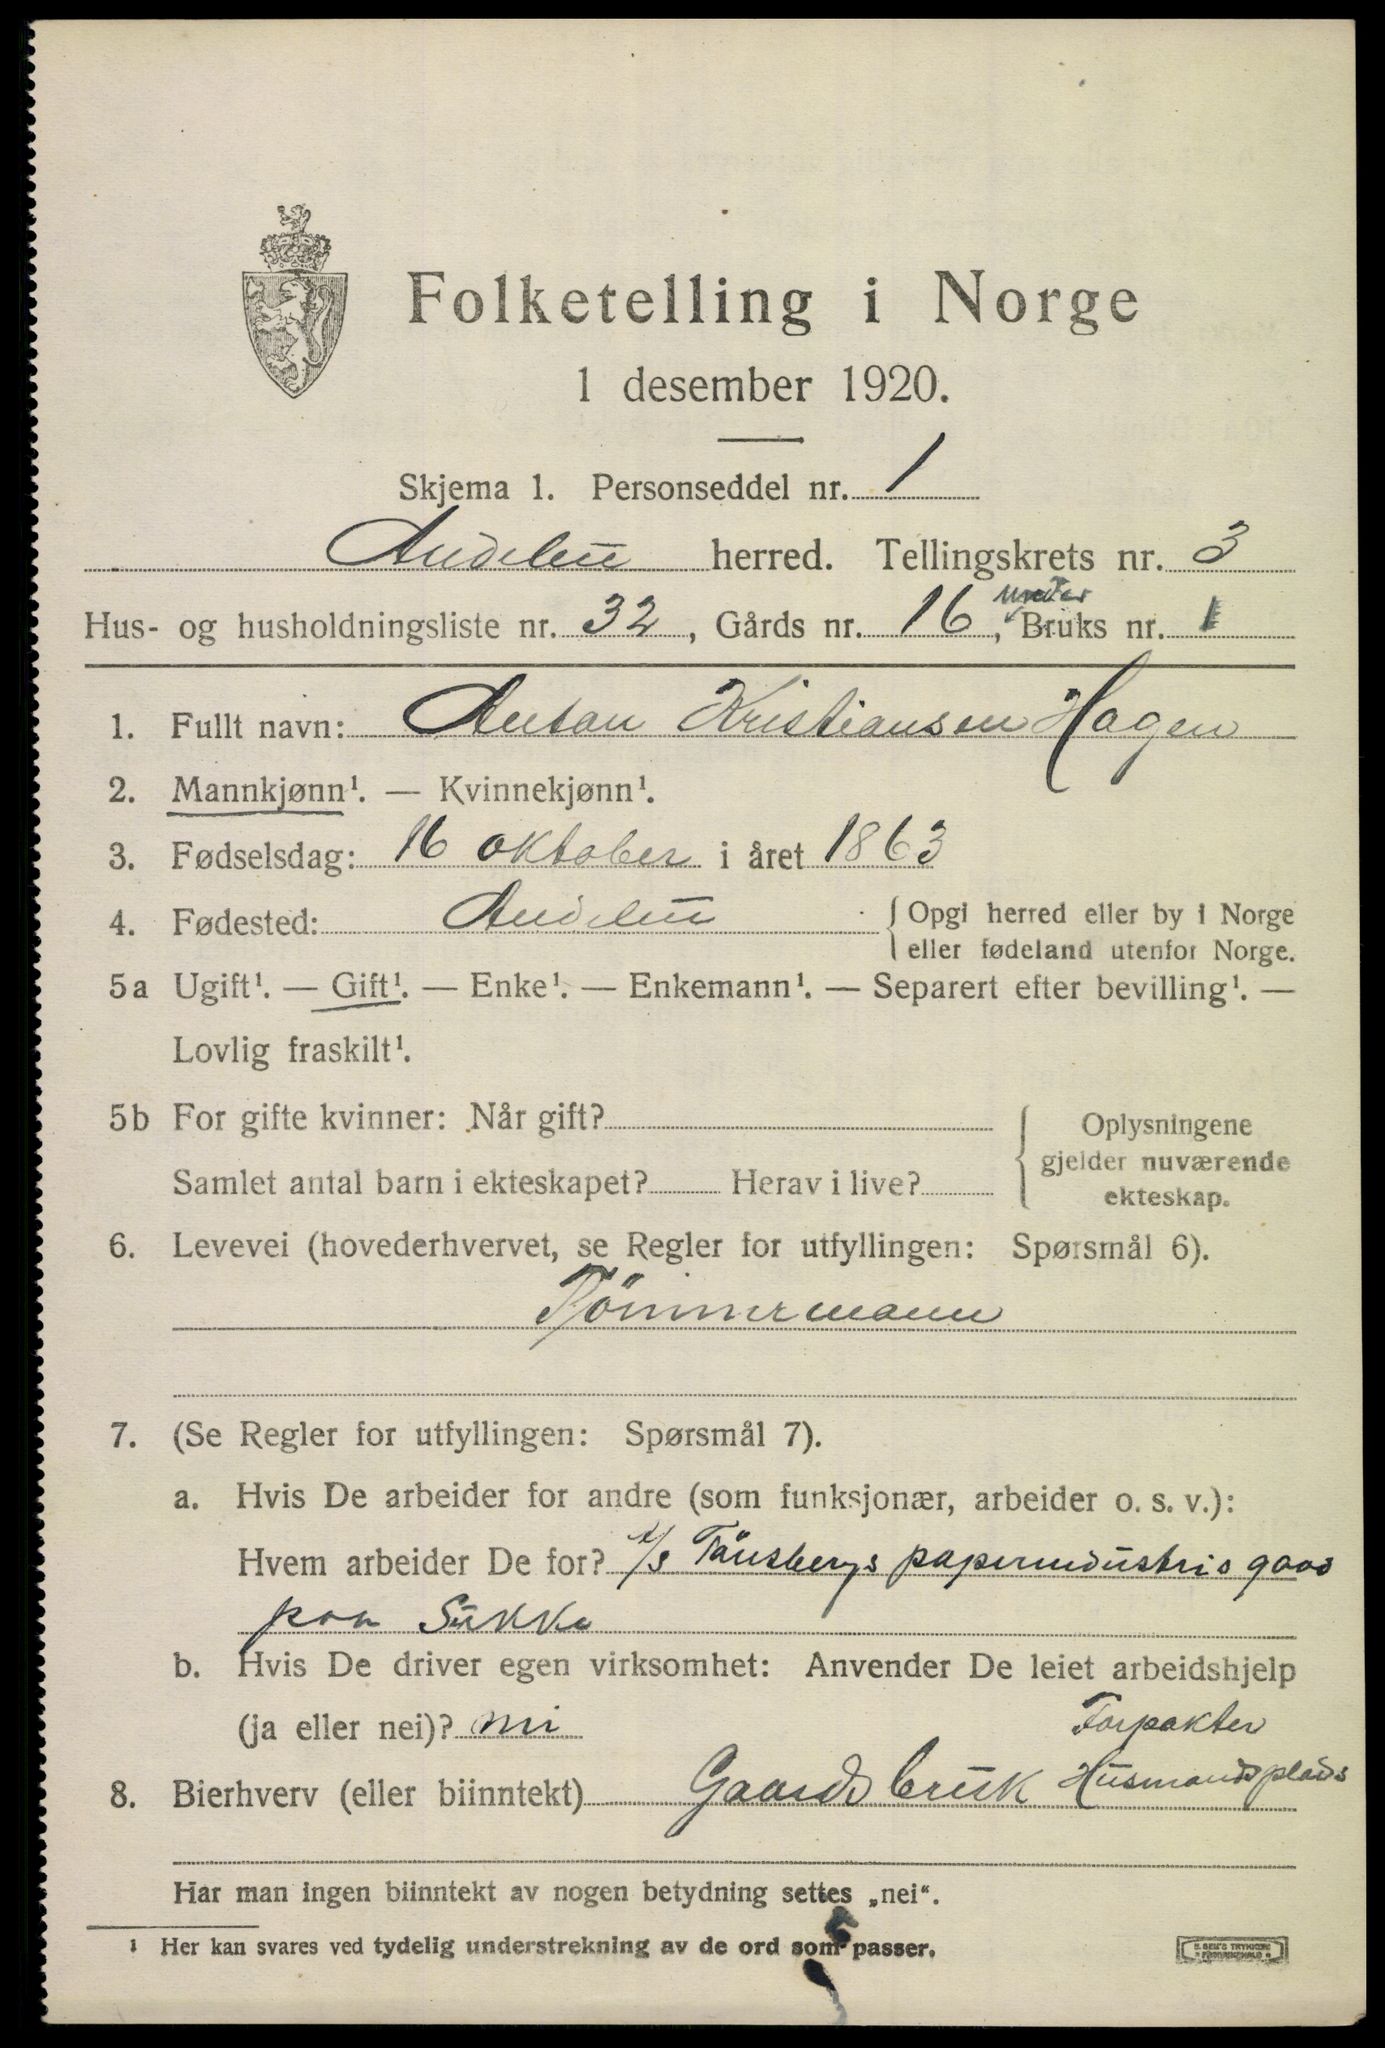 Folketelling i Norge
1 desember 1920.
Skjema 1. Personseddel nr. 1
Andebu herred. Tellingskrets nr. 3
Hus- og husholdningsliste nr. 32, Gårds nr. 16, under Bruks nr. 1
1. Fullt navn: Anton Kristiansen Hagen
2. Mannkjønn¹. — Kvinnekjønn¹.
3. Fødselsdag: 16 oktober i året 1863
4. Fødested: Andebu {Opgi herred eller by i Norge
eller fødeland utenfor Norge.
5a Ugift¹. — Gift¹. — Enke¹. — Enkemann¹. — Separert efter bevilling¹. —
Lovlig fraskilt¹.
5b For gifte kvinner: Når gift?
Samlet antal barn i ekteskapet? Herav i live?
{Oplysningene
gjelder nuværende
ekteskap.
6. Levevei (hovederhvervet, se Regler for utfyllingen: Spørsmål 6).
Tömmermann
7. (Se Regler for utfyllingen: Spørsmål 7).
a. Hvis De arbeider for andre (som funksjonær, arbeider o. s. v.):
Hvem arbeider De for? A/S Tönsbergs papirindustris gaas
paa Sukke
b. Hvis De driver egen virksomhet: Anvender De leiet arbeidshjelp
(ja eller nei)? nei
Forpakter
8. Bierhverv (eller biinntekt) Gaardsbruk Husmandsplads
Har man ingen biinntekt av nogen betydning settes „nei“.
¹ Her kan svares ved tydelig understrekning av de ord som passer.